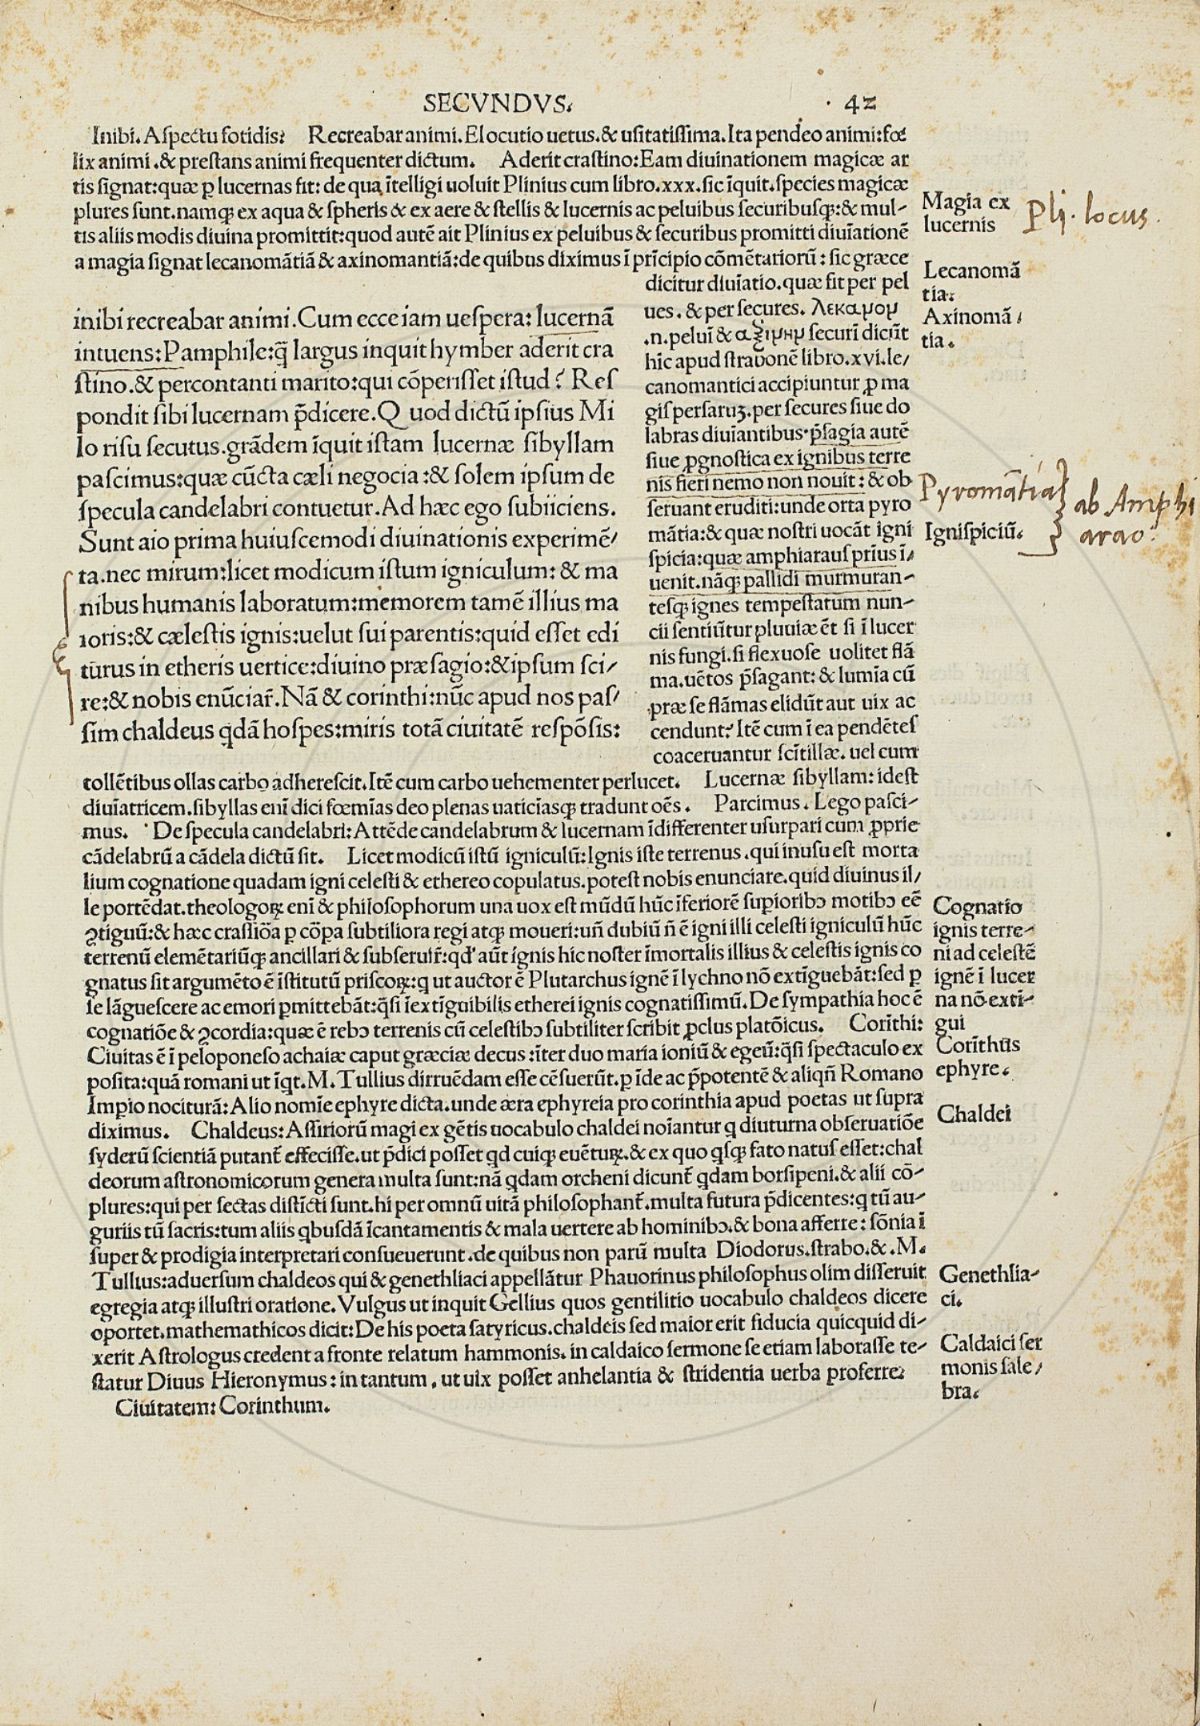 SECVNDVS.
42
Inibi. Aſpectu fotidis: Recreabar animi. Elocutio uetus.& uſitatiſſima. Ita pendeo animi:fœ
lix animi .& preſtans animi frequenter dictum. Aderit craſtino:Eam diuinationem magicæ ar
tis ſignat:quæ ꝑ lucernas fit: de qua ītelligi uoluit Plinius cum libro.xxx.ſic īquit.ſpecies magicæ
plures ſunt.namqꝫ ex aqua & ſpheris & ex aere & ſtellis & lucernis ac peluibus ſecuribuſqꝫ:& mul-
tis aliis modis diuina promittit:quod autē ait Plinius ex peluibus & ſecuribus promitti diuīationē
a magia ſignat lecanomātiā & axinomantiā:de quibus diximus ī prīcipio cōmētariorū : ſic græce
dicitur diuīatio.quæ fit per pel
ues. & per ſecures. λεκαμομ
.n.peluī & αξιμημ ſecurī dicūt
hic apud ſtrauonē libro.xvi.le/
canomantici accipiuntur ꝓ ma
giſ perſaruꝫ.per ſecures ſiue do
labras diuīantibus.p̄ſagia autē
ſiue ꝓgnoſtica ex ignibus terre
nis fieri nemo non nouit : & ob
ſeruant eruditi:unde orta pyro
mātia:& quæ noſtri uocāt igni
ſpicia:quæ amphiarauſ prius ī/
uenit.nāqꝫ pallidi murmuran-
teſqꝫ ignes tempeſtatum nun-
cii ſentiūtur pluuiæ ēt ſi ī lucer
nis fungi.ſi flexuoſe uolitet flā
ma.uētos p̄ſagant: & lumīa cū
præ ſe flāmas elidūt aut uix ac
cendunt: Itē cum ī ea pendēteſ
coaceruantur ſcītillæ. uel cum
inibi recreabar animi.Cum ecce iam ueſpera: lucernā
intuens:Pamphile:q̄ largus inquit hymber aderit cra
ſtino.& percontanti marito:qui cōperiſſet iſtud? Reſ
pondit ſibi lucernam p̄dicere.Quod dictū ipſius Mi
lo riſu ſecutus.grādem īquit iſtam lucernæ ſibyllam
paſcimus:quæ cūcta cæli negocia :& ſolem ipſum de
ſpecula candelabri contuetur.Ad hæc ego ſubiiciens.
Sunt aio prima huiuſcemodi diuinationis experimē/
ta.nec mirum:licet modicum iſtum igniculum: & ma
nibus humanis laboratum:memorem tamē illius ma
ioris:& cæleſtis ignis:uelut ſui parentis:quid eſſet edi
tūrus in etheris uertice:diuino præſagio:& ipſum ſci/
re:& nobis enūciar̄.Nā & corinthi:nūc apud nos paſ/
ſim chaldeus qdā hoſpes:miris totā ciuitatē reſpōſis:
tollētibus ollas carbo adhereſcit.Itē cum carbo uehementer perlucet. Lucernæ ſibyllam: ideſt
diuīatricem.ſibyllas enī dici fœmīas deo plenas uaticīasqꝫ tradunt oēs. Parcimus. Lego paſci-
mus. De ſpecula candelabri: Attēde candelabrum & lucernam īdifferenter uſurpari cum ꝓprie
cādelabrū a cādela dictū ſit. Licet modicū iſtū igniculū: Ignis iſte terrenus .qui in uſu eſt morta
lium cognatione quadam igni celeſti & ethereo copulatus.poteſt nobis enunciare.quid diuinus il/
le portēdat.theologoꝝ enī & philoſophorum una uox eſt mūdū hūc īferiorē ſupioribꝰ motibꝰ eē
ꝯtiguū:& hæc craſſiōa ꝑ cōpa ſubtiliora regi atqꝫ moueri:un̄ dubiū n̄ ē igni illi celeſti igniculū hūc
terrenū elemētariūqꝫ ancillari & ſubſeruir̄:qd' aūt ignis hic noſter īmortalis illius & celeſtis ignis co
gnatus ſit argumēto ē īſtitutū priſcoꝝ:q ut auctor ē Plutarchus ignē ī lychno nō extīguebāt:ſed ꝑ
ſe lāgueſcere ac emori ꝑmittebāt:qſi īextīguibilis etherei ignis cognatiſſimū. De ſympathia hoc ē
cognatiōe & ꝯcordia:quæ ē rebꝰ terrenis cū celeſtibꝰ ſubtiliter ſcribit ꝓclus platōicus. Corīthi:
Ciuitas ē ī peloponeſo achaiæ caput græciæ decus :īter duo maria ioniū & egeū:qſi ſpectaculo ex
poſita:quā romani ut īqt.M.Tullius dirruēdam eſſe cēſuerūt.ꝑ īde ac p̄potentē & aliqn̄ Romano
Impio nociturā:Alio nomīe ephyre dicta.unde æra ephyreia pro corinthia apud poetas ut ſupra
diximus. Chaldeus: Aſſiriorū magi ex gētis uocabulo chaldei noīantur q diuturna obſeruatiōe
ſyderū ſcientiā putant̄ effeciſſe.ut p̄dici poſſet qd cuiqꝫ euēturꝝ.& ex quo qſqꝫ fato natuſ eſſet:chal
deorum aſtronomicorum genera multa ſunt:nā qdam orcheni dicunt̄ qdam borſipeni.& alii cō-
plures:qui per ſectas diſtīcti ſunt.hi per omnū uitā philoſophant̄.multa futura p̄dicentes:q tū au-
guriis tū ſacris:tum aliis qbuſdā īcantamentis & mala uertere ab hominibꝰ.& bona afferre : ſōnia ī
ſuper & prodigia interpretari conſueuerunt .de quibus non parū multa Diodorus.ſtrabo.& .M.
Tullius:aduerſum chaldeos qui & genethliaci appellātur Phauorinus philoſophus olim diſſeruit
egregia atqꝫ illuſtri oratione.Vulgus ut inquit Gellius quos gentilitio uocabulo chaldeos dicere
oportet.mathemathicos dicit: De his poeta ſatyricus.chaldeis ſed maior erit fiducia quicquid di-
xerit Aſtrologus credent a fronte relatum hammonis. in caldaico ſermone ſe etiam laboraſſe te-
ſtatur Diuus Hieronymus: in tantum , ut uix poſſet anhelantia & ſtridentia uerba proferre:
Ciuitatem: Corinthum.
Magia ex
lucernis
Pli. locus.
Lecanomā
tia:
Axinomā/
tia.
Pyromātia
ab Amphi
arao.
Igniſpiciū.
Cognatio
ignis terre-
ni ad celeſtē
ignē ī lucer
na nō exti-
gui
Corīthus
ephyre.
Chaldei
Genethlia-
ci.
Caldaici ſer
monis ſale/
bra.